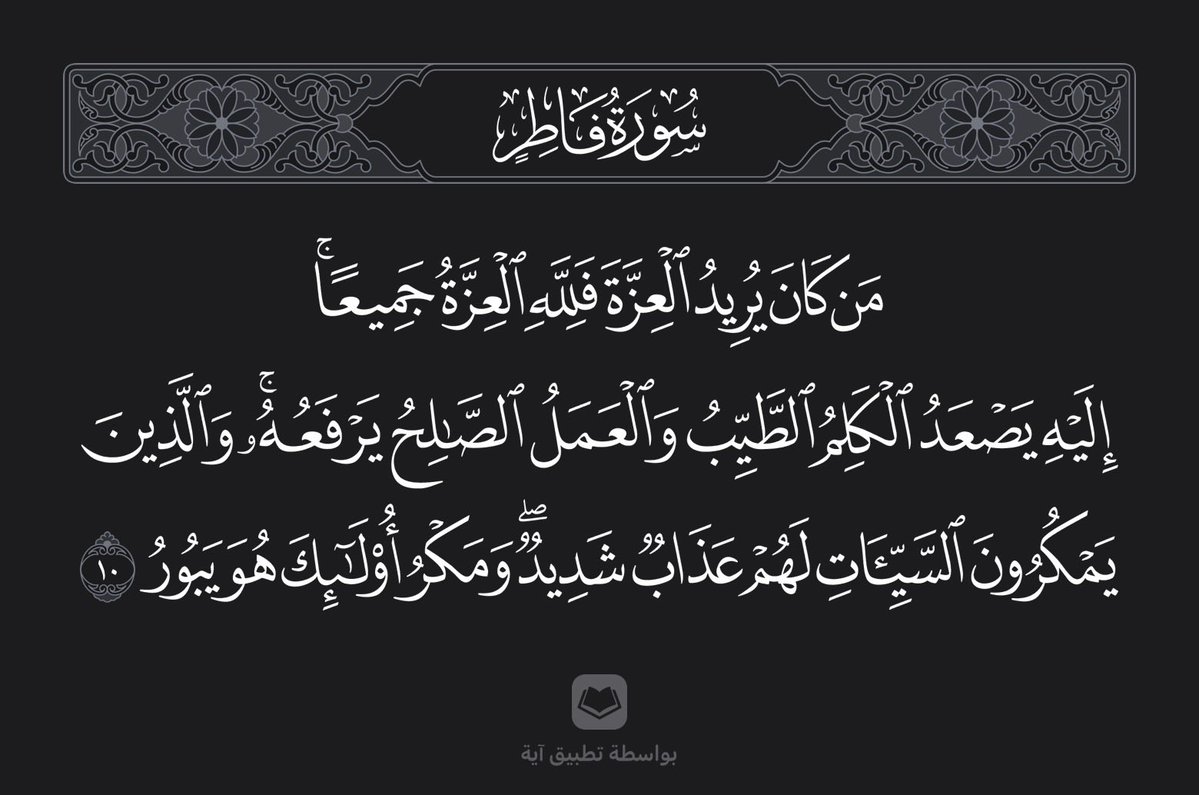 سُورَةُ فَاطِرٍ
مَن كَانَ يُرِيدُ ٱلْعِزَّةَ فَلِلَّهِ ٱلْعِزَّةُ جَمِيعًاۚ
إِلَيْهِ يَصْعَدُ ٱلْكَلِمُ ٱلطَّيِّبُ وَٱلْعَمَلُ ٱلصَّـٰلِحُ يَرْفَعُهُۥۚ وَٱلَّذِينَ
يَمْكُرُونَ ٱلسَّيِّـَٔاتِ لَهُمْ عَذَابٌ شَدِيدٌۖ وَمَكْرُ أُو۟لَـٰٓئِكَ هُوَ يَبُورُ ١٠
بواسطة تطبيق آية